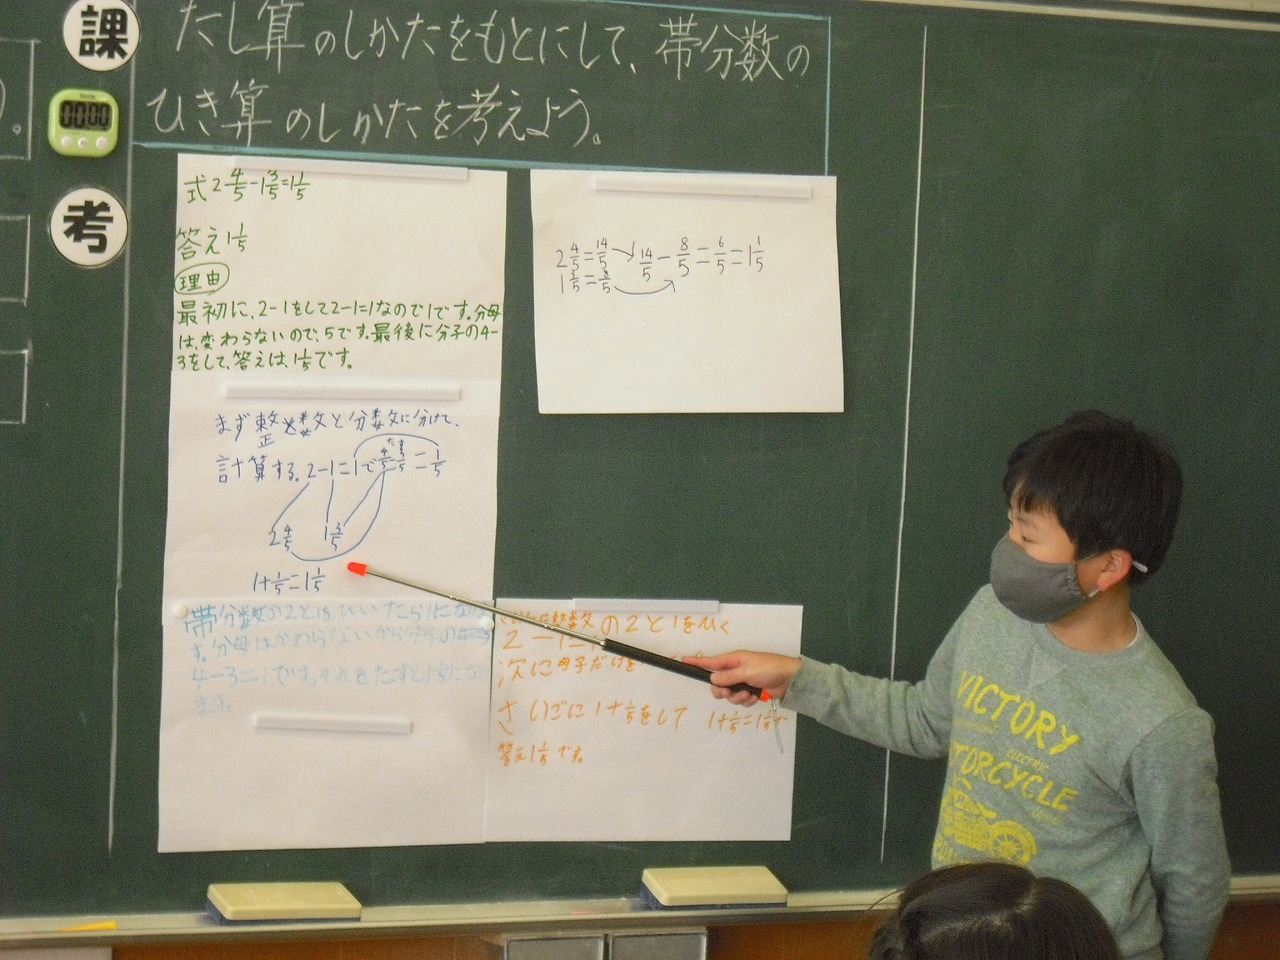 課
たし算のしかたをもとにして、帯分数の
ひき算のしかたを考えよう。
00:00
考
式 2 4/5 - 1 3/5 = 1 1/5
答え 1 1/5
理由
最初に、2-1をして2-1=1なので1です。分母
は、変わらないので、5です。最後に分子の4-
3をして、答えは、1 1/5です。
2 4/5 = 14/5
1 3/5 = 8/5
14/5 - 8/5 = 6/5 = 1 1/5
まず整数と分数に分けて、
計算する。2-1=1で 4/5 - 3/5 = 1/5
たす
2 4/5 1 3/5
1+1/5=1 1/5
帯分数の2と1をひいたら1になりま
す。分母はかわらないから
4-3=1です。それをたすと1 1/5になり
ます。
数の2と1をひく
2-1=1
次に母子だけを
さいごに1+1/5をして 1+1/5=1 1/5
答え1 1/5です。
VICTORY
ELECTRIC
MOTORCYCLE